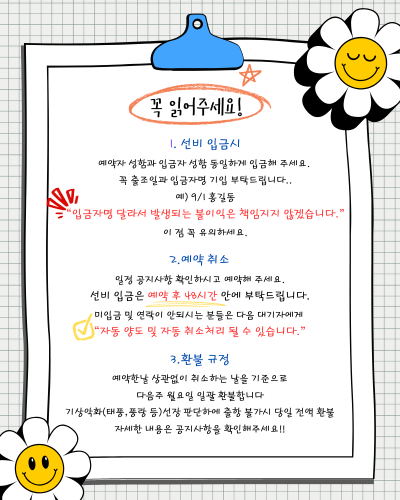 꼭 읽어주세요!
1. 선비 입금시
예약자 성함과 입금자 성함 동일하게 입금해 주세요.
꼭 출조일과 입금자명 기입 부탁드립니다..
예) 9/1 홍길동
"입금자명 달라서 발생되는 불이익은 책임지지 않겠습니다."
이 점 꼭 유의하세요.
2.예약 취소
일정 공지사항 확인하시고 예약해 주세요.
선비 입금은 예약 후 48시간 안에 부탁드립니다.
미입금 및 연락이 안되시는 분들은 다음 대기자에게
"자동 양도 및 자동 취소처리 될 수 있습니다."
3.환불 규정
예약한날 상관없이 취소하는 날을 기준으로
다음주 월요일 일괄 환불합니다
기상악화(태풍,풍랑 등)선장 판단하에 출항 불가시 당일 전액 환불
자세한 내용은 공지사항을 확인해주세요!!